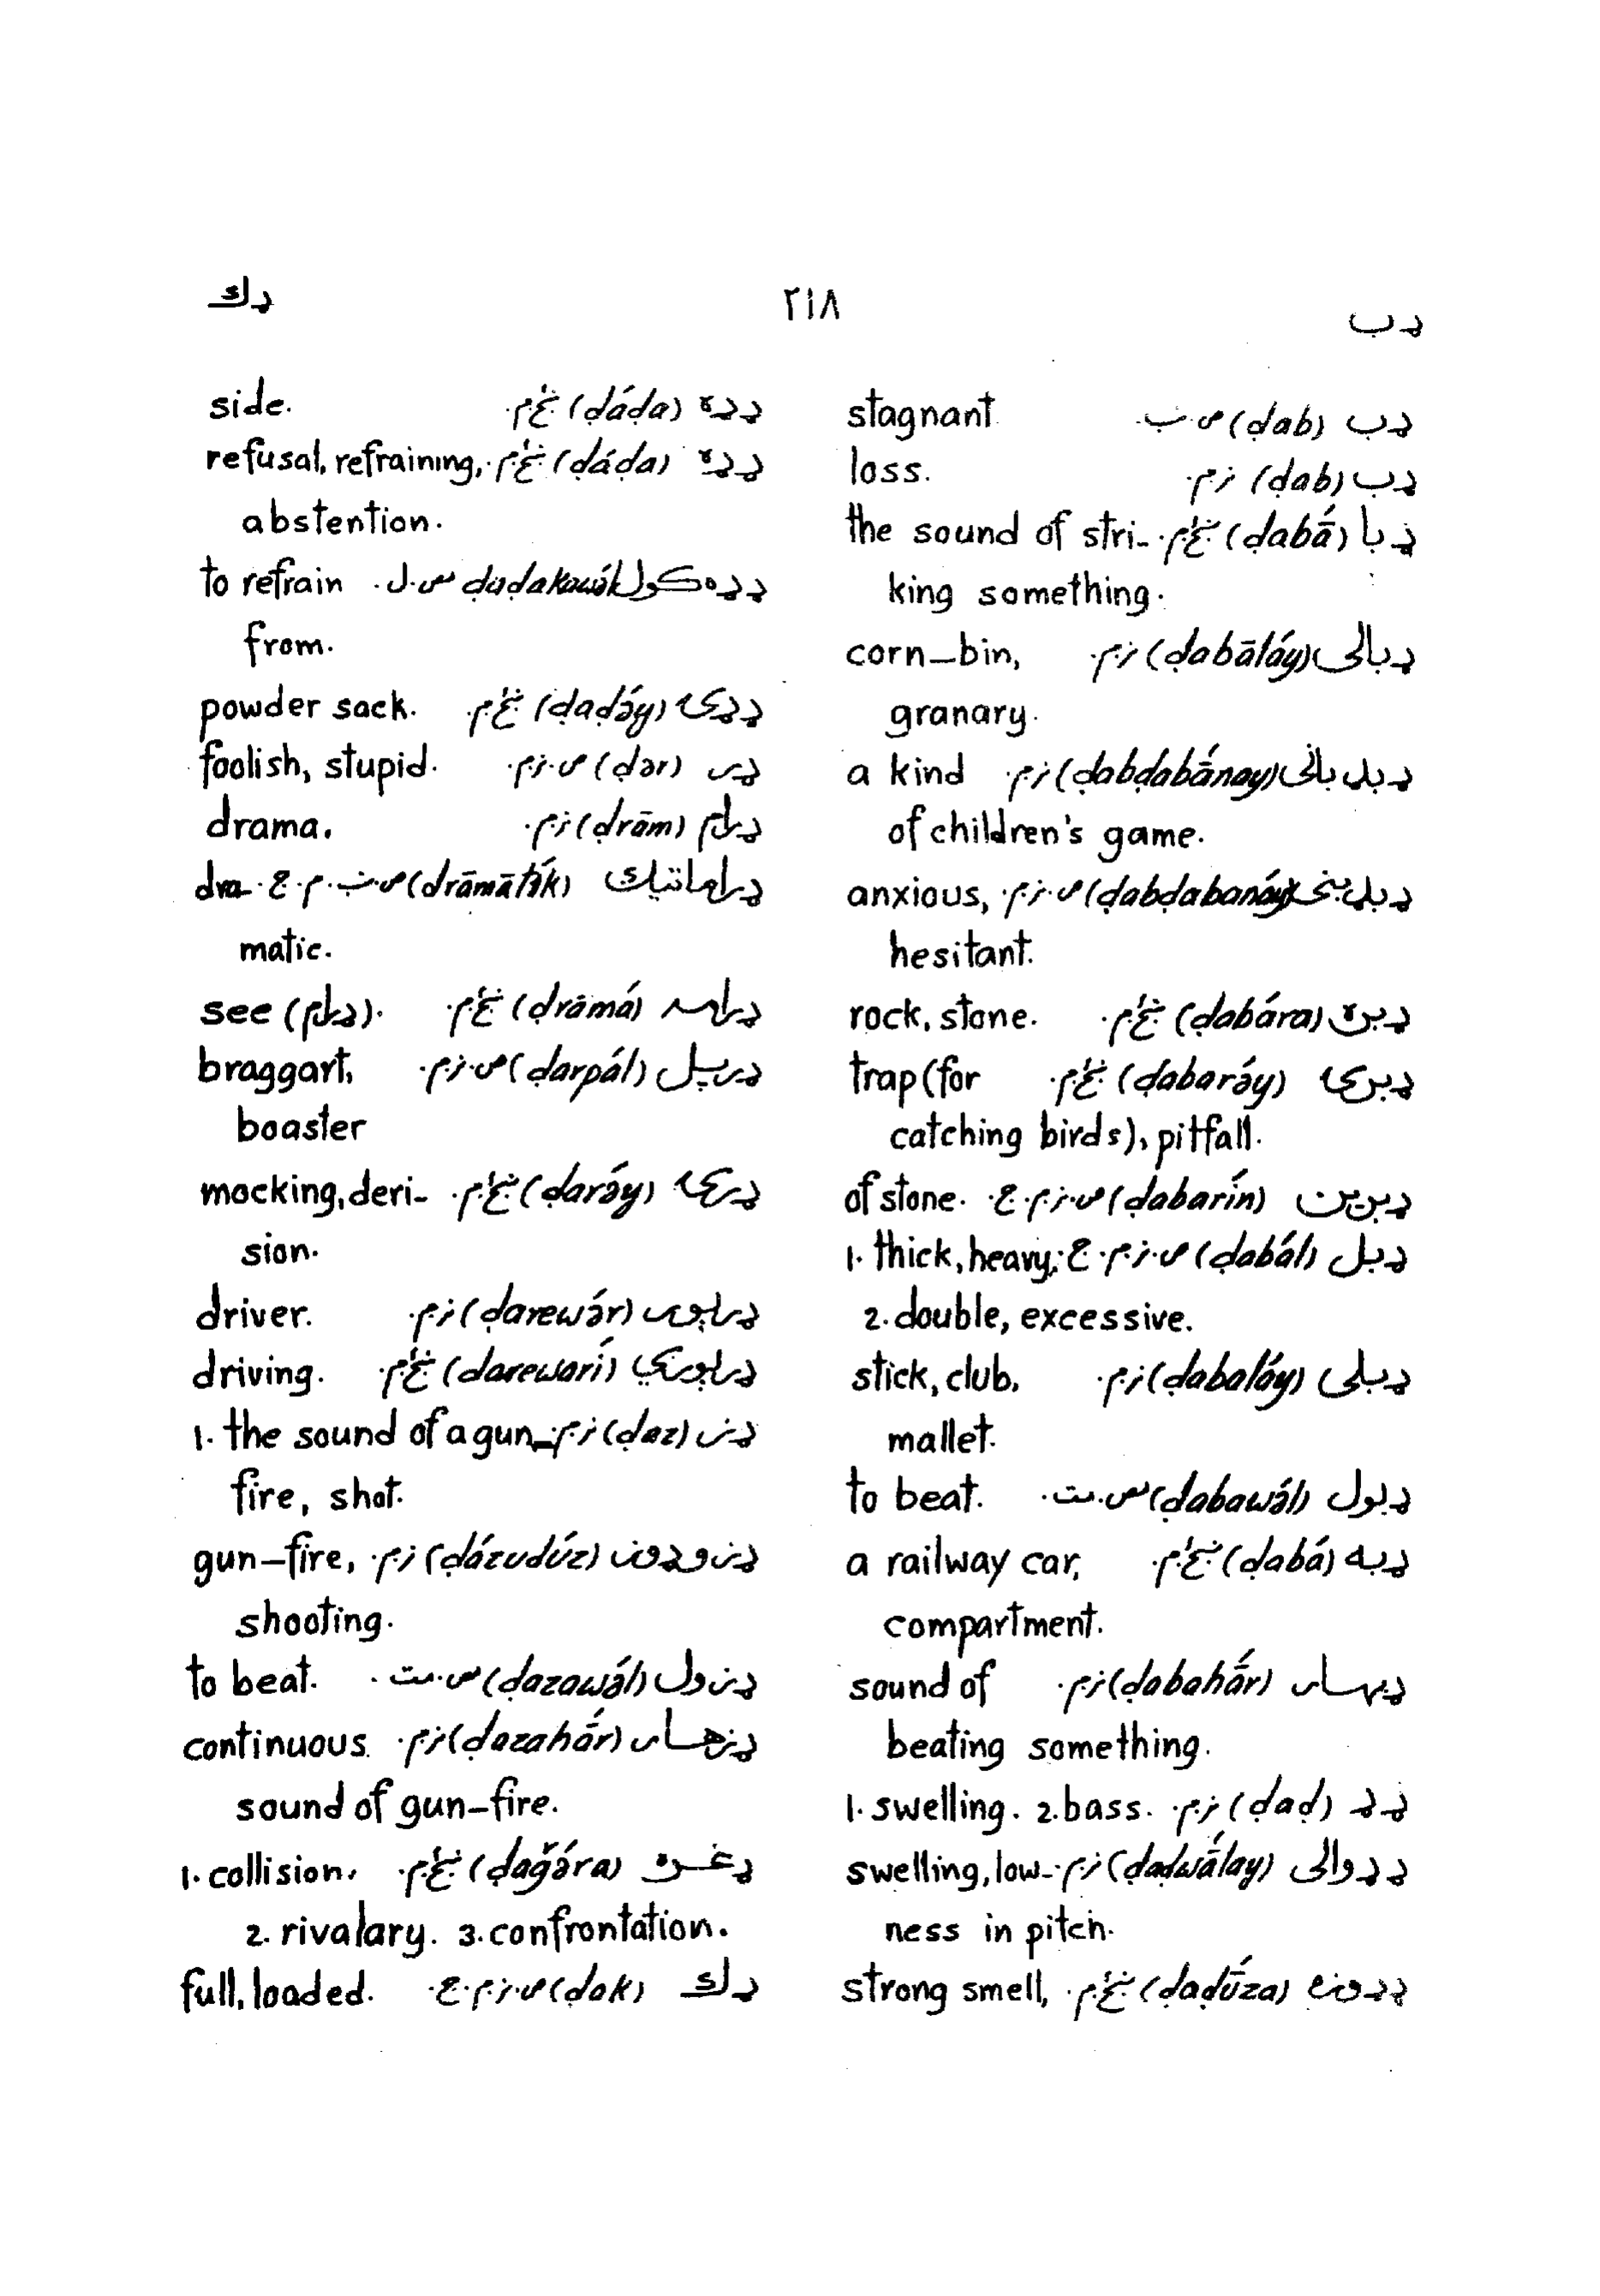 ډب
٢١٨
ډك
ډب (ḍab) ص.ب. stagnant
ډب (ḍab) ن.م. loss.
ډبا (ḍabā́) ښځ.م. the sound of stri-
king something.
ډبالی (ḍabāláy) ن.م. corn-bin,
granary.
ډبډبانی (ḍabḍabā́nay) ن.م. a kind
of children's game.
(ḍabḍabanáy) ص.ن.م. anxious,
hesitant.
ډبره (ḍabára) ښځ.م. rock, stone.
ډبرۍ (ḍabarə́y) ښځ.م. trap (for
catching birds), pitfall.
ډبرين (ḍabarín) ص.ن.م.ج. of stone.
ډبل (ḍabál) ص.ن.م.ج. 1. thick, heavy;
2. double, excessive.
ډبلی (ḍabaláy) ن.م. stick, club,
mallet.
ډبول (ḍabawə́l) ص.مت. to beat.
ډبه (ḍabá) ښځ.م. a railway car,
compartment.
ډبهار (ḍabahā́r) ن.م. sound of
beating something.
ډډ (ḍaḍ) ن.م. 1. swelling. 2. bass.
ډډوالی (ḍaḍwā́lay) ن.م. swelling, low-
ness in pitch.
ډډوزه (ḍaḍū́za) ښځ.م. strong smell,
ډډه (ḍáḍa) ښځ.م. side.
ډډه (ḍáḍa) ښځ.م. refusal, refraining,
abstention.
ډډه كول ḍaḍakawə́l ص.ل. to refrain
from.
ډډۍ (ḍaḍə́y) ښځ.م. powder sack.
ډر (ḍər) ص.ن.م. foolish, stupid.
ډرام (ḍrām) ن.م. drama.
ډراماتيك (ḍrāmātík) ص.ب.م.ج. dra-
matic.
ډرامه (ḍrāmá) ښځ.م. see (ډرام).
ډرپل (ḍarpál) ص.ن.م. braggart,
boaster
ډرۍ (ḍarə́y) ښځ.م. mocking, deri-
sion.
ډرېور (ḍarewár) ن.م. driver.
ډرېوري (ḍarewarí) ښځ.م. driving.
ډز (ḍaz) ن.م. 1. the sound of a gun-
fire, shot.
ډزوډوز (ḍázuḍúz) ن.م. gun-fire,
shooting.
ډزول (ḍazawə́l) ص.مت. to beat.
ډزهار (ḍazahā́r) ن.م. continuous
sound of gun-fire.
ډغره (ḍağə́ra) ښځ.م. 1. collision.
2. rivalary. 3. confrontation.
ډك (ḍak) ص.ن.م.ج. full, loaded.